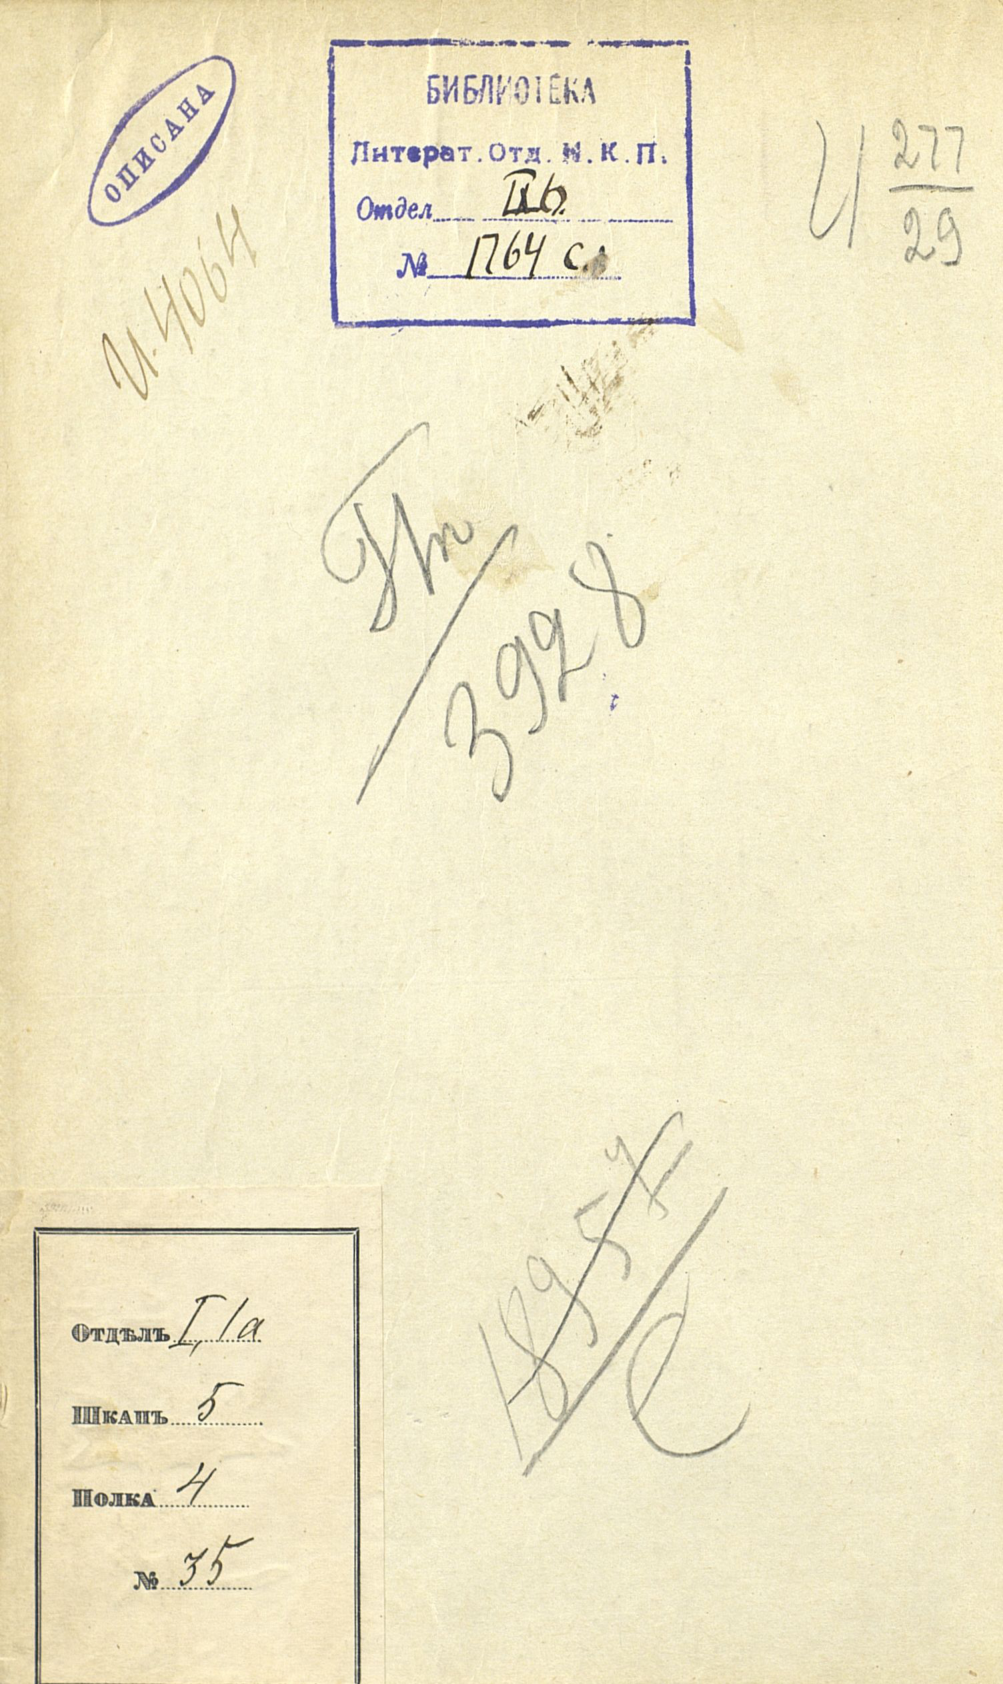 ОПИСАНА
БИБЛИОТЕКА
Литерат. Отд. Н. К. П.
Отдел IXb.
№ 1764 с.
И 277
29
И-4064
3928
18957
С
Отдѣлъ I, 1а
Шкапъ 5
Полка 4
№ 35